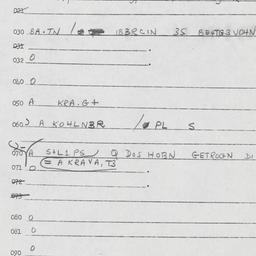 021
030 BA.TN / IBBRCIN 35
031 .
032 0 .
040 0
050 A KRA.G+
060 A KO4LNBR / PL S
070 A S+L1PS / Q DOS HOBN GETROGN DI
071 0 = A KRAVA,T3
072 .
073
080 0
081 0
090 0